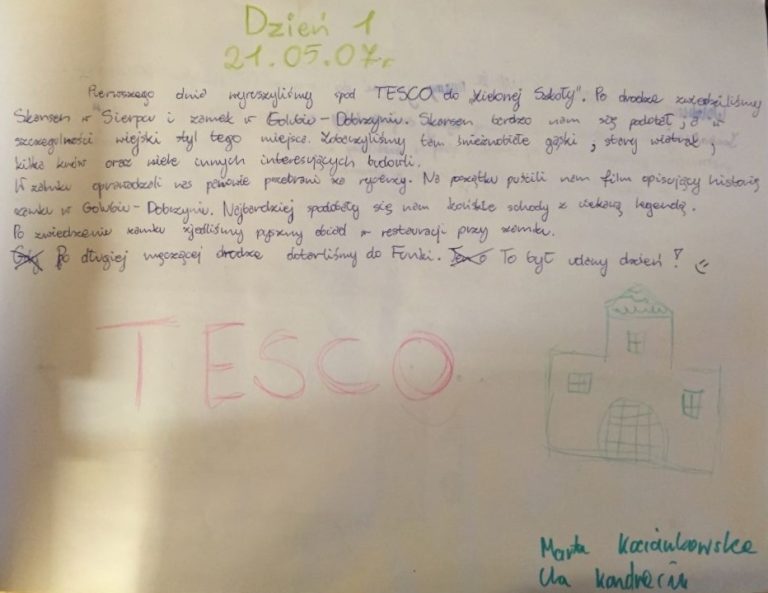 Dzień 1
21.05.07r.
Pierwszego dnia wyruszyliśmy spod TESCO do "Zielonej Szkoły". Po drodze zwiedziliśmy
Skansen w Sierpcu i zamek w Golubiu-Dobrzyniu. Skansen bardzo nam się podobał, a w
szczególności wiejski styl tego miejsca. Zobaczyliśmy tam śnieżnobiałe gąski, stary wiatrak,
kilka koni oraz wiele innych interesujących budowli.
W zamku oprowadzali nas panowie przebrani za rycerzy. Na początku puścili nam film opisujący historię
zamku w Golubiu-Dobrzyniu. Najbardziej spodobały się nam schody z ciekawą legendą.
Po zwiedzeniu zamku zjedliśmy pyszny obiad w restauracji przy zamku.
Po długiej męczącej drodze dotarliśmy do Funki. To był udany dzień!
TESCO
Marta
Ula